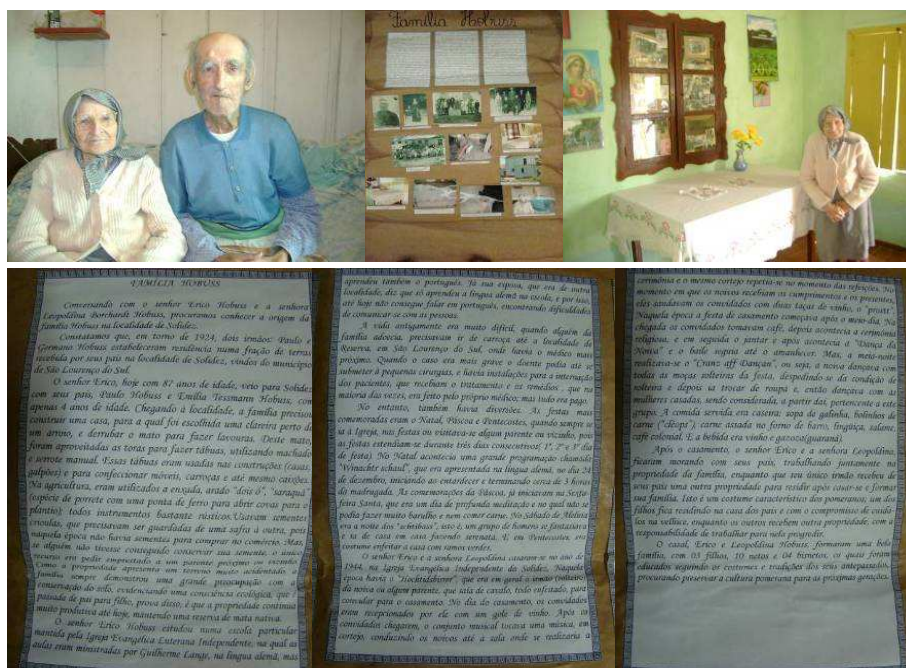 Família Hobuss
FAMÍLIA HOBUSS
Conversando com o senhor Erico Hobuss e a senhora
Leopoldina Borchardt Hobuss, procuramos conhecer a origem da
família Hobuss na localidade de Solidez.
Constatamos que, em torno de 1924, dois irmãos: Paulo e
Germano Hobuss estabeleceram residência numa fração de terras
recebida por seus pais na localidade de Solidez, vindos do município
de São Lourenço do Sul.
O senhor Erico, hoje com 87 anos de idade, veio para Solidez
com seus pais, Paulo Hobuss e Emília Tessmann Hobuss, com
apenas 4 anos de idade. Chegando à localidade, a família precisou
construir uma casa, para a qual foi escolhida uma clareira perto de
um arroio, e derrubar o mato para fazer lavouras. Deste mato
foram aproveitadas as toras para fazer tábuas, utilizando machado
e serrote manual. Essas tábuas eram usadas nas construções (casas,
galpões) e para confeccionar móveis, carroças e até mesmo caixões.
Na agricultura, eram utilizados a enxada, arado "dois b", "saraquá"
(espécie de porrete com uma ponta de ferro para abrir covas para o
plantio); todos instrumentos bastante rústicos. Usavam sementes
crioulas, que precisavam ser guardadas de uma safra à outra, pois
naquela época não havia sementes para comprar no comércio. Mas,
se alguém não tivesse conseguido conservar sua semente, o único
recurso era pedir emprestado a um parente próximo ou vizinho.
Como a propriedade apresenta um terreno muito acidentado, a
família sempre demonstrou uma grande preocupação com a
conservação do solo, evidenciando uma consciência ecológica, que é
passada de pais para filho, prova disso, é que a propriedade continua
muito produtiva até hoje, mantendo uma reserva de mata nativa.
O senhor Erico Hobuss estudou numa escola particular
mantida pela Igreja Evangélica Luterana Independente, na qual as
aulas eram ministradas por Guilherme Lange, na língua alemã, mas
aprendeu também o português. Já sua esposa, que era de outra
localidade, diz que só aprendeu a língua alemã na escola, e por isso,
até hoje não consegue falar em português, encontrando dificuldades
de comunicar-se com as pessoas.
A vida antigamente era muito difícil, quando alguém da
família adoecia, precisavam ir de carroça até a localidade de
Reserva, em São Lourenço do Sul, onde havia o médico mais
próximo. Quando o caso era mais grave o doente podia até se
submeter à pequenas cirurgias, e haviam instalações para a internação
dos pacientes, que recebiam o tratamento e os remédios, que na
maioria das vezes, era feito pelo próprio médico; mas tudo era pago.
No entanto, também havia diversões. As festas mais
comemoradas eram o Natal, Páscoa e Pentecostes, quando sempre se
ia à Igreja, nas festas ou visitava-se algum parente ou vizinho, pois
as festas estendiam-se durante três dias consecutivos( 1º, 2º e 3º dia
de festa). No Natal acontecia uma grande programação chamada
que era apresentada na língua alemã, no dia 24
de dezembro, iniciando ao entardecer e terminando cerca de 3 horas
da madrugada. As comemorações da Páscoa, já iniciavam na Sexta-
feira Santa, que era um dia de profunda meditação e no qual não se
podia fazer muito barulho e nem comer carne. No Sábado de Aleluia
era a noite dos isto é, um grupo de homens se fantasiava
e ia de casa em casa fazendo serenata. E em Pentecostes era
costume enfeitar a casa com ramos verdes.
O senhor Erico e a senhora Leopoldina casaram-se no ano de
1944, na Igreja Evangélica Independente da Solidez. Naquela
época havia o que era em geral o irmão (solteiro)
da noiva ou algum parente, que saía de cavalo, todo enfeitado, para
convidar para o casamento. No dia do casamento, os convidados
eram recepcionados por ele com um gole de vinho. Após os
convidados chegarem, o conjunto musical tocava uma música, em
cortejo, conduzindo os noivos até a sala onde se realizaria a
cerimônia e o mesmo cortejo repetia-se no momento das refeições. No
momento em que os noivos recebiam os cumprimentos e os presentes,
eles saudavam os convidados com duas taças do vinho, o "prosit".
Naquela época a festa de casamento começava após o meio-dia. Na
chegada os convidados tomavam café, depois acontecia a cerimônia
religiosa, e em seguida o jantar e após acontecia a "Dança da
Noiva" e o baile seguia até o amanhecer. Mas, a meia-noite
realizava-se o ou seja, a noiva dançava com
todas as moças solteiras da festa, despedindo-se da condição de
solteira e depois ia trocar de roupa e, então dançava com as
mulheres casadas, sendo considerada, a partir daí, pertencente a este
grupo. A comida servida era caseira: sopa de galinha, bolinhos de
carne carne assada no forno de barro, lingüiça, salame,
café colonial. E a bebida era vinho e gazoza(guaraná).
Após o casamento, o senhor Erico e a senhora Leopoldina,
ficaram morando com seus pais, trabalhando juntamente na
propriedade da família, enquanto que seu único irmão recebeu de
seus pais uma outra propriedade para residir após casar-se e formar
sua família. Isto é um costume característico dos pomeranos; um dos
filhos fica residindo na casa dos pais e com o compromisso de cuidá-
los na velhice, enquanto os outros recebem outra propriedade, com a
responsabilidade de trabalhar para nela progredir.
O casal, Erico e Leopoldina Hobuss, formaram uma bela
família, com 03 filhos, 10 netos e 04 bisnetos, os quais foram
educados seguindo os costumes e tradições dos seus antepassados,
procurando preservar a cultura pomerana para as próximas gerações.